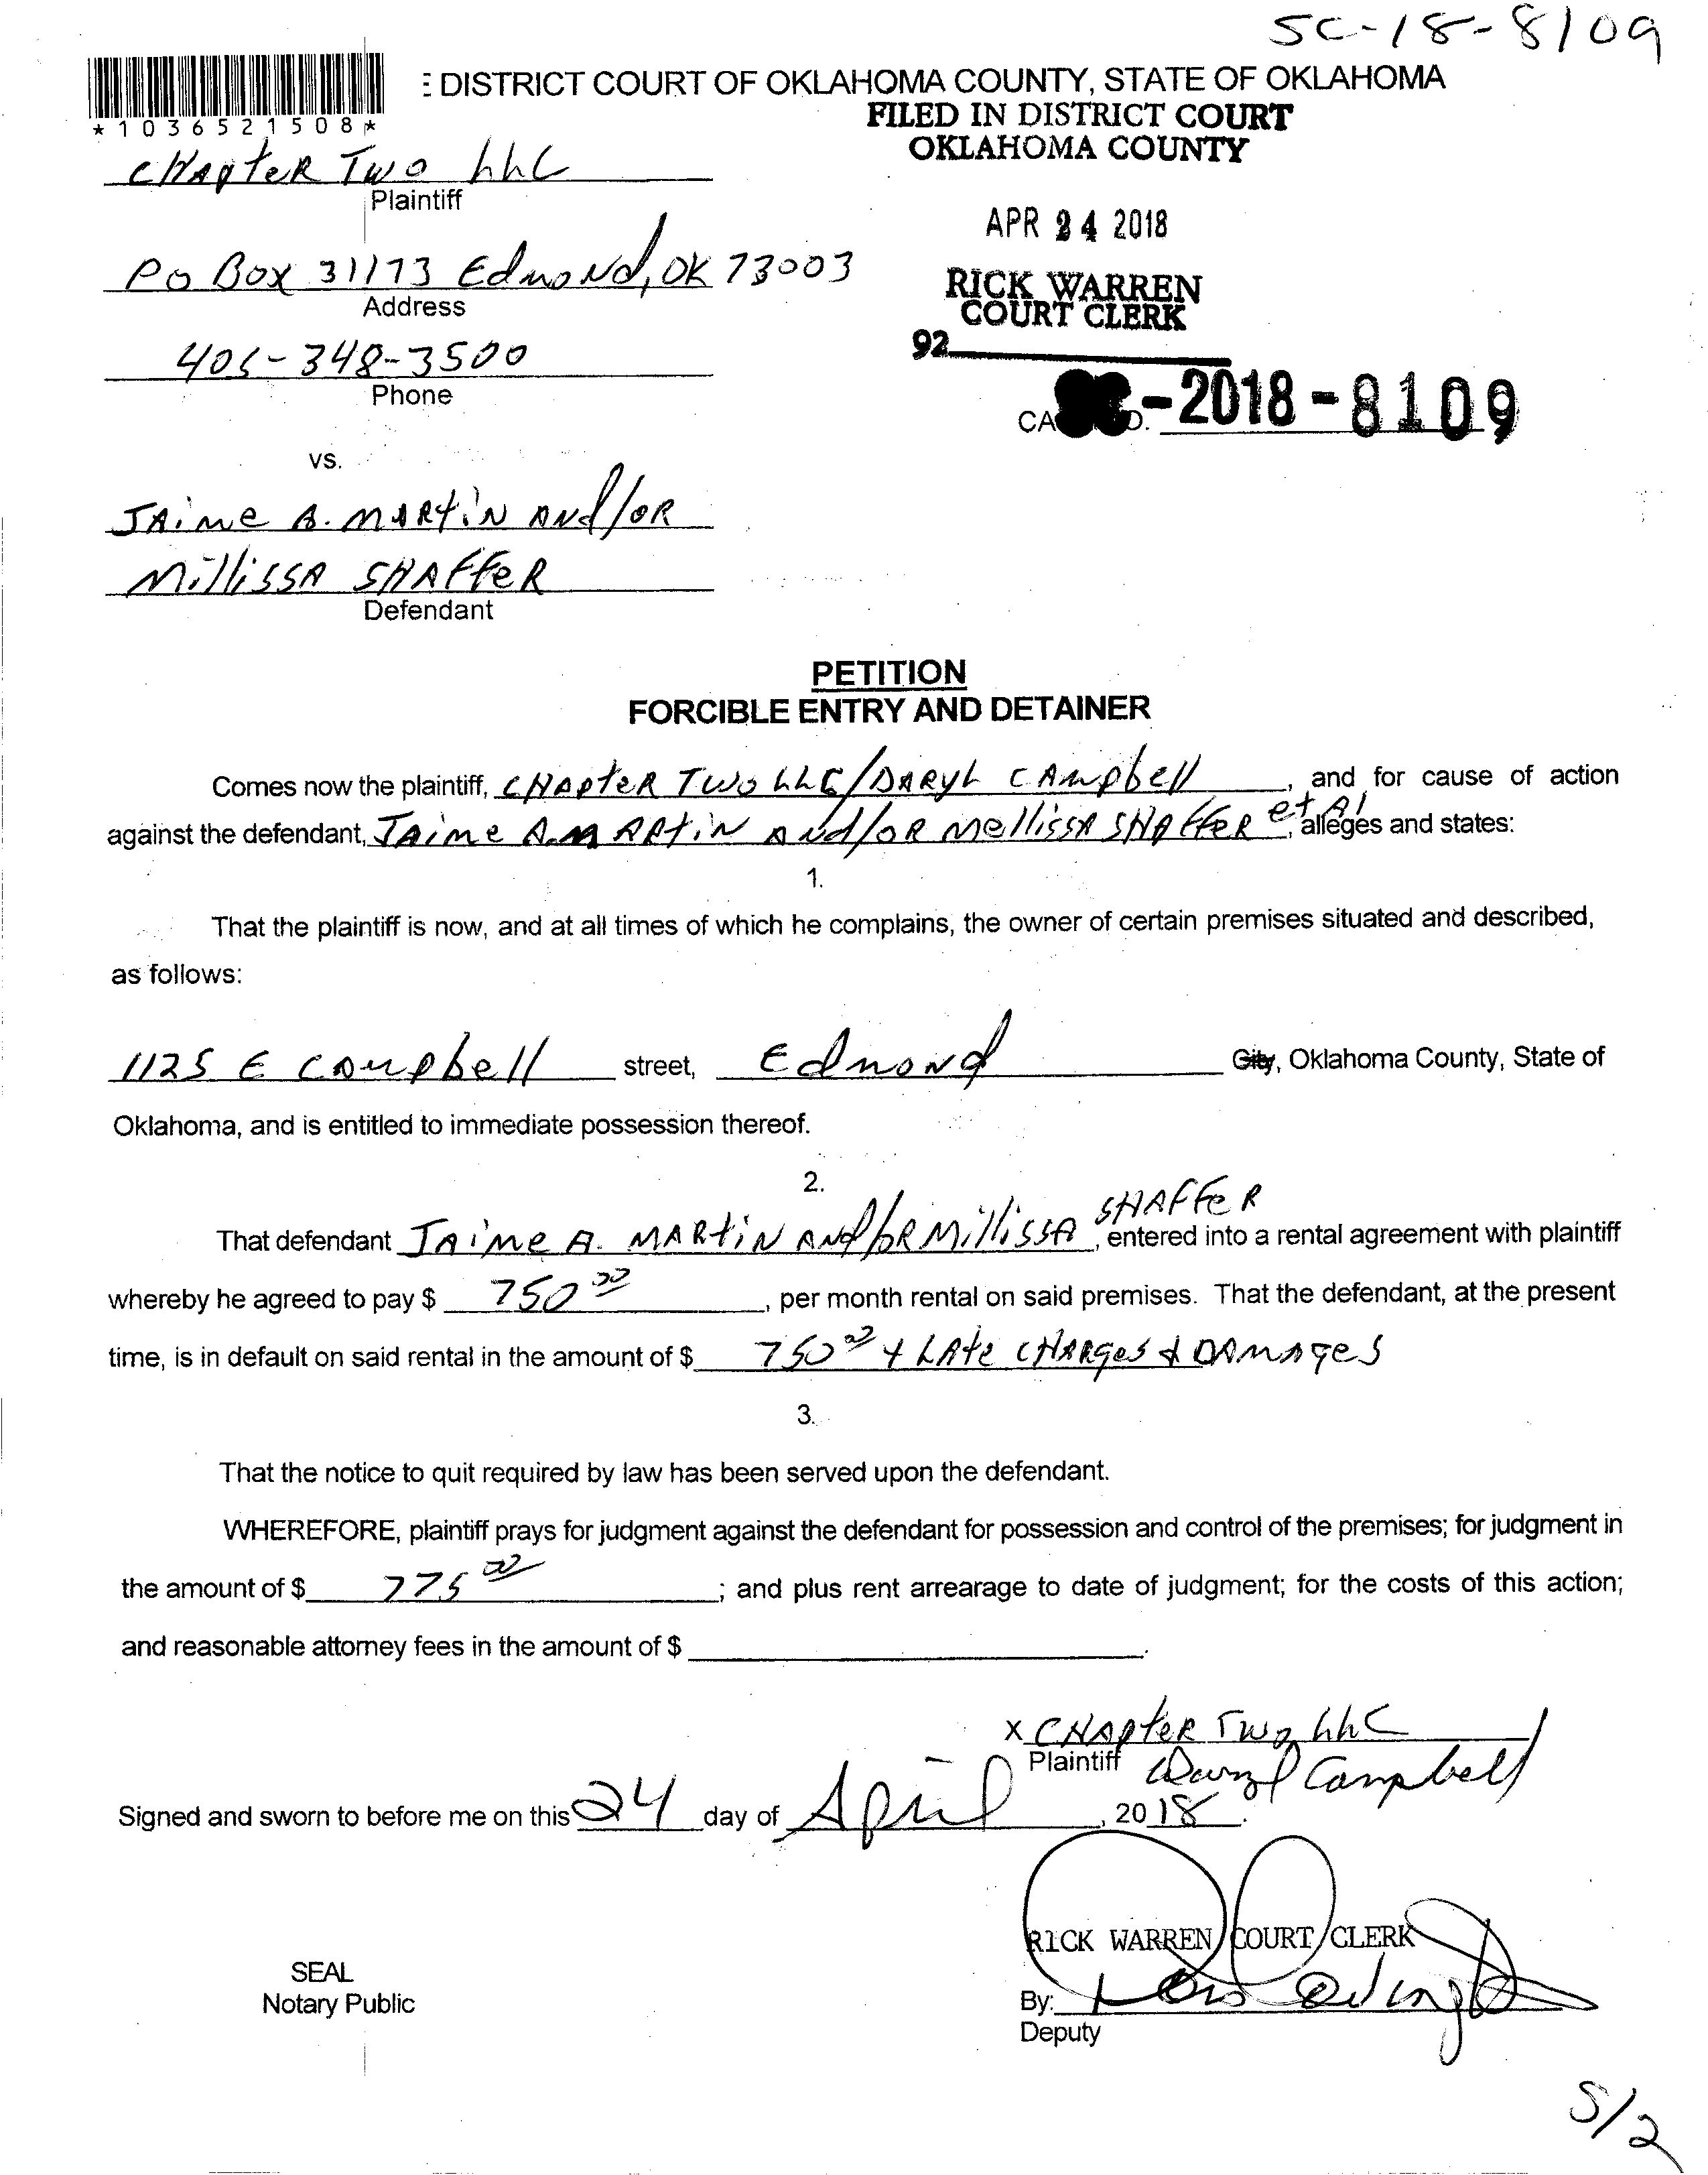 SC-18-8109
E DISTRICT COURT OF OKLAHOMA COUNTY, STATE OF OKLAHOMA
*1036521508*
FILED IN DISTRICT COURT
OKLAHOMA COUNTY
CHApteR Two LLC
Plaintiff
APR 24 2018
PO Box 31173 Edmond, OK 73003
Address
RICK WARREN
COURT CLERK
92
405-348-3500
Phone
CA SC-2018-8109
vs.
JAime A. MARtiN ANd/oR
MillissA SHAffeR
Defendant
PETITION
FORCIBLE ENTRY AND DETAINER
Comes now the plaintiff, CHApteR Two LLC/DARyL CAmpbell, and for cause of action
against the defendant, JAime A. MARtiN ANd/oR MellissA SHAffeR et Al, alleges and states:
1.
That the plaintiff is now, and at all times of which he complains, the owner of certain premises situated and described,
as follows:
1125 E CAmpbell street, Edmond City, Oklahoma County, State of
Oklahoma, and is entitled to immediate possession thereof.
2.
That defendant JAime A. MARtiN ANd/oR MillissA SHAffeR, entered into a rental agreement with plaintiff
whereby he agreed to pay $ 750.00, per month rental on said premises. That the defendant, at the present
time, is in default on said rental in the amount of $ 750.00 + LAte CHARges & DAmAges
3.
That the notice to quit required by law has been served upon the defendant.
WHEREFORE, plaintiff prays for judgment against the defendant for possession and control of the premises; for judgment in
the amount of $ 775.00; and plus rent arrearage to date of judgment; for the costs of this action;
and reasonable attorney fees in the amount of $ .
X CHApteR Two LLC
Plaintiff Daryl Campbell
Signed and sworn to before me on this 24 day of April, 2018.
RICK WARREN COURT CLERK
SEAL
Notary Public
By:
Deputy
5/2